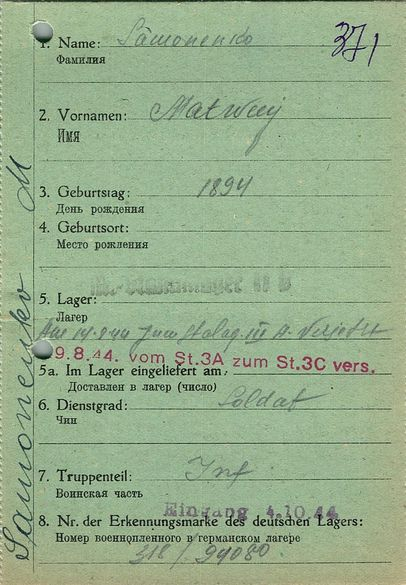 1. Name: Samonenko
Фамилия
37/
2. Vornamen: Matwey
Имя
3. Geburtstag: 1894
День рождения
4. Geburtsort:
Место рождения
5. Lager: II B
Лагер
Stalag III A
9.8.44. vom St.3A zum St.3C vers.
5a. Im Lager eingeliefert am:
Доставлен в лагер (число)
6. Dienstgrad: Soldat
Чин
7. Truppenteil: Inf
Воинская часть
Eingang 4.10.44
8. Nr. der Erkennungsmarke des deutschen Lagers:
Номер военнопленного в германском лагере
318/. 94080
Samonenko M